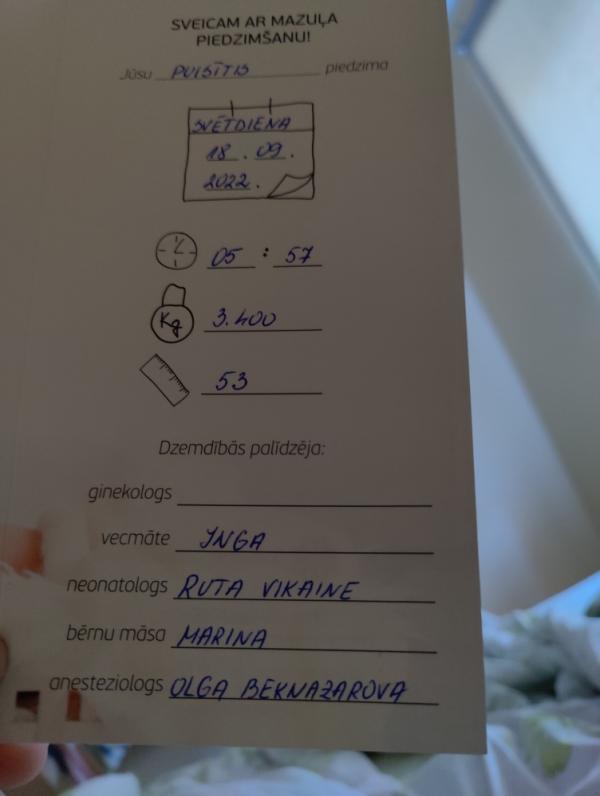 SVEICAM AR MAZUĻA
PIEDZIMŠANU!
Jūsu PUISĪTIS piedzima
SVĒTDIENA
18.09.
2022.
05 : 57
Kg 3.400
53
Dzemdībās palīdzēja:
ginekologs
vecmāte INGA
neonatologs RUTA VIKAINE
bērnu māsa MARINA
anesteziologs OLGA BEKNAZAROVA